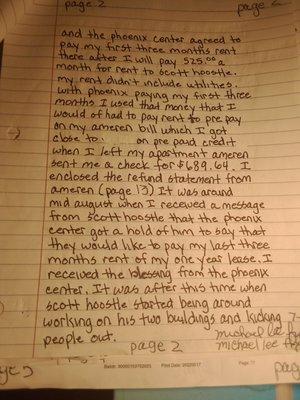 page 2
and the phoenix center agreed to
pay my first three months rent
there after I will pay 525.00 a
month for rent to scott hoostle.
my rent didn't include utilities.
with phoenix paying my first three
months I used that money that I
would of had to pay rent to pre pay
on my ameren bill which I got
close to on pre paid credit
when I left my apartment ameren
sent me a check for $689.69. I
enclosed the refund statement from
ameren (page 13) It was around
mid august when I received a message
from scott hoostle that the phoenix
center got a hold of him to say that
they would like to pay my last three
months rent of my one year lease. I
received the blessing from the phoenix
center. It was after this time when
scott hoostle started being around
working on his two buildings and kicking
people out.
michael lee
michael lee
page 2